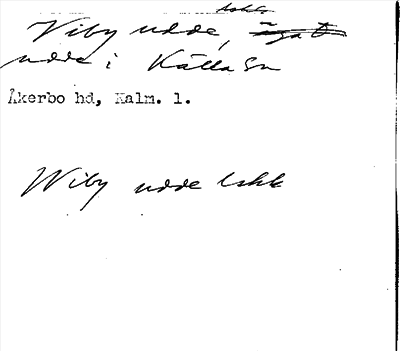 Viby udde,
udde i Källa sn
Åkerbo hd, Kalm. l.
Wiby udde lskk